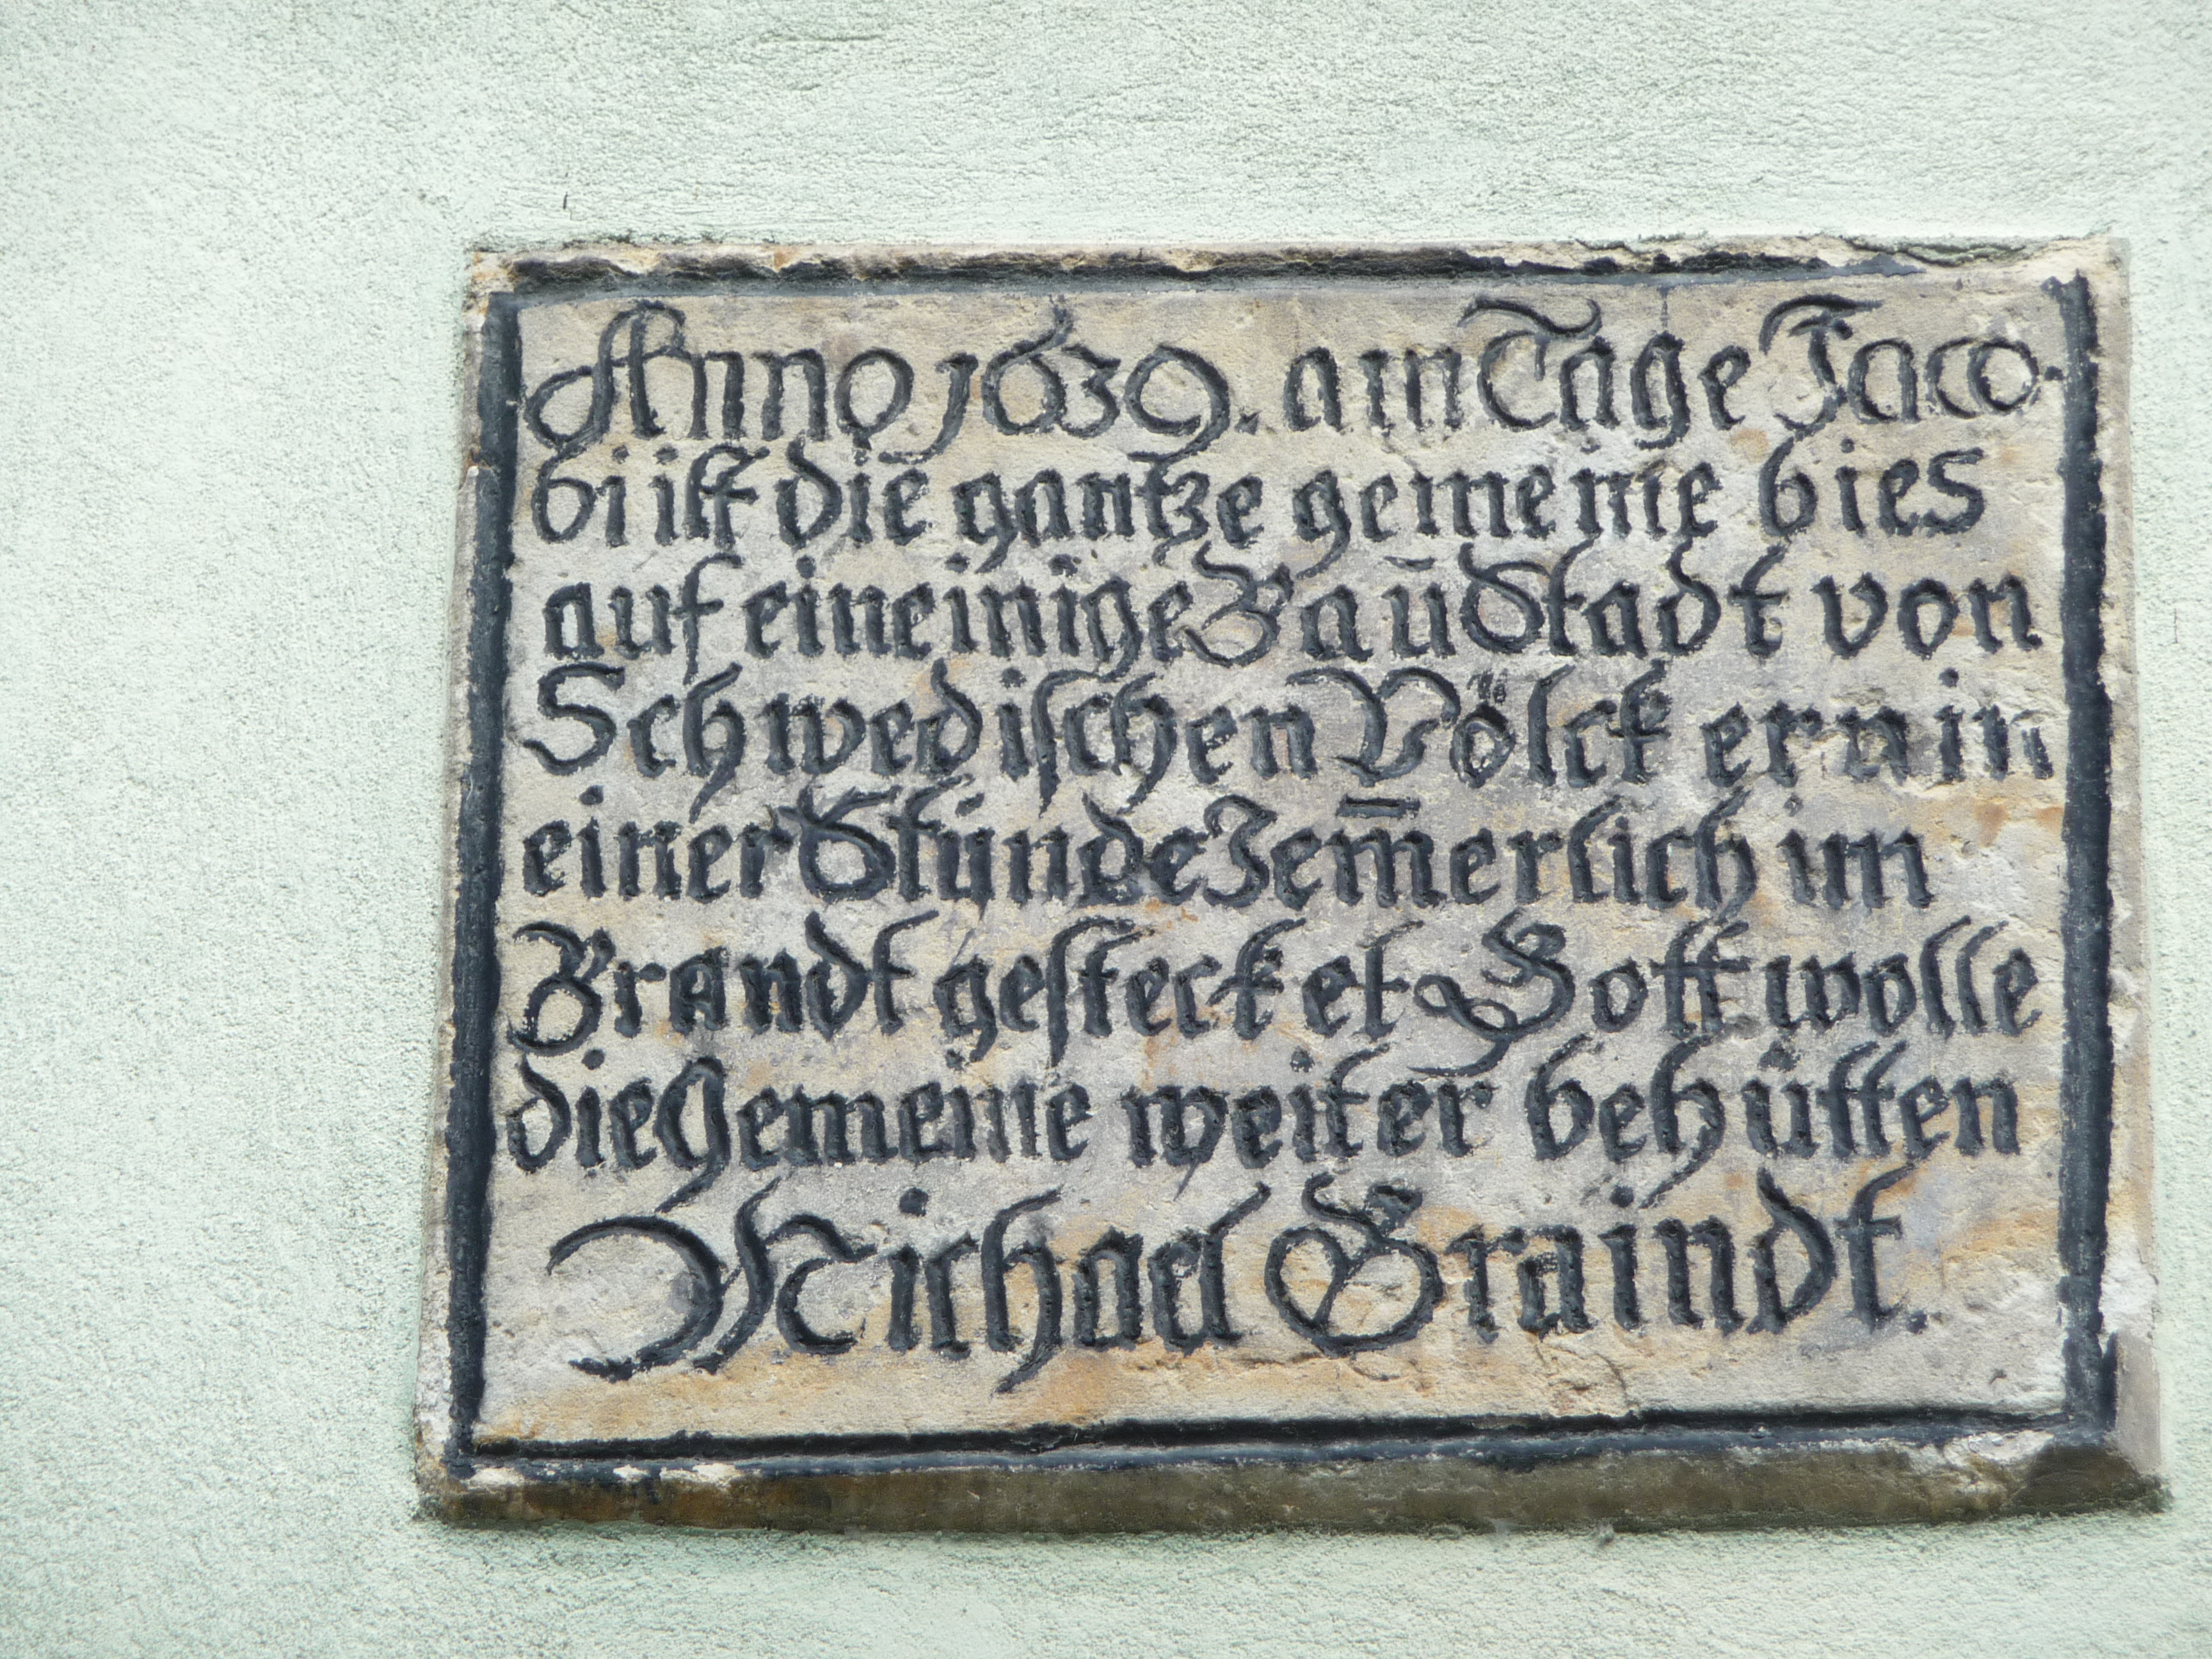 Anno 1639. am Tage Jaco-
bi ist die gantze gemeine bies
auf eineinige Baustadt von
Schwedischen Völckern in
einer Stunde Jem̄erlich im
Brandt gestecket Gott wolle
die Gemeine weiter behütten
Michael Graindt.